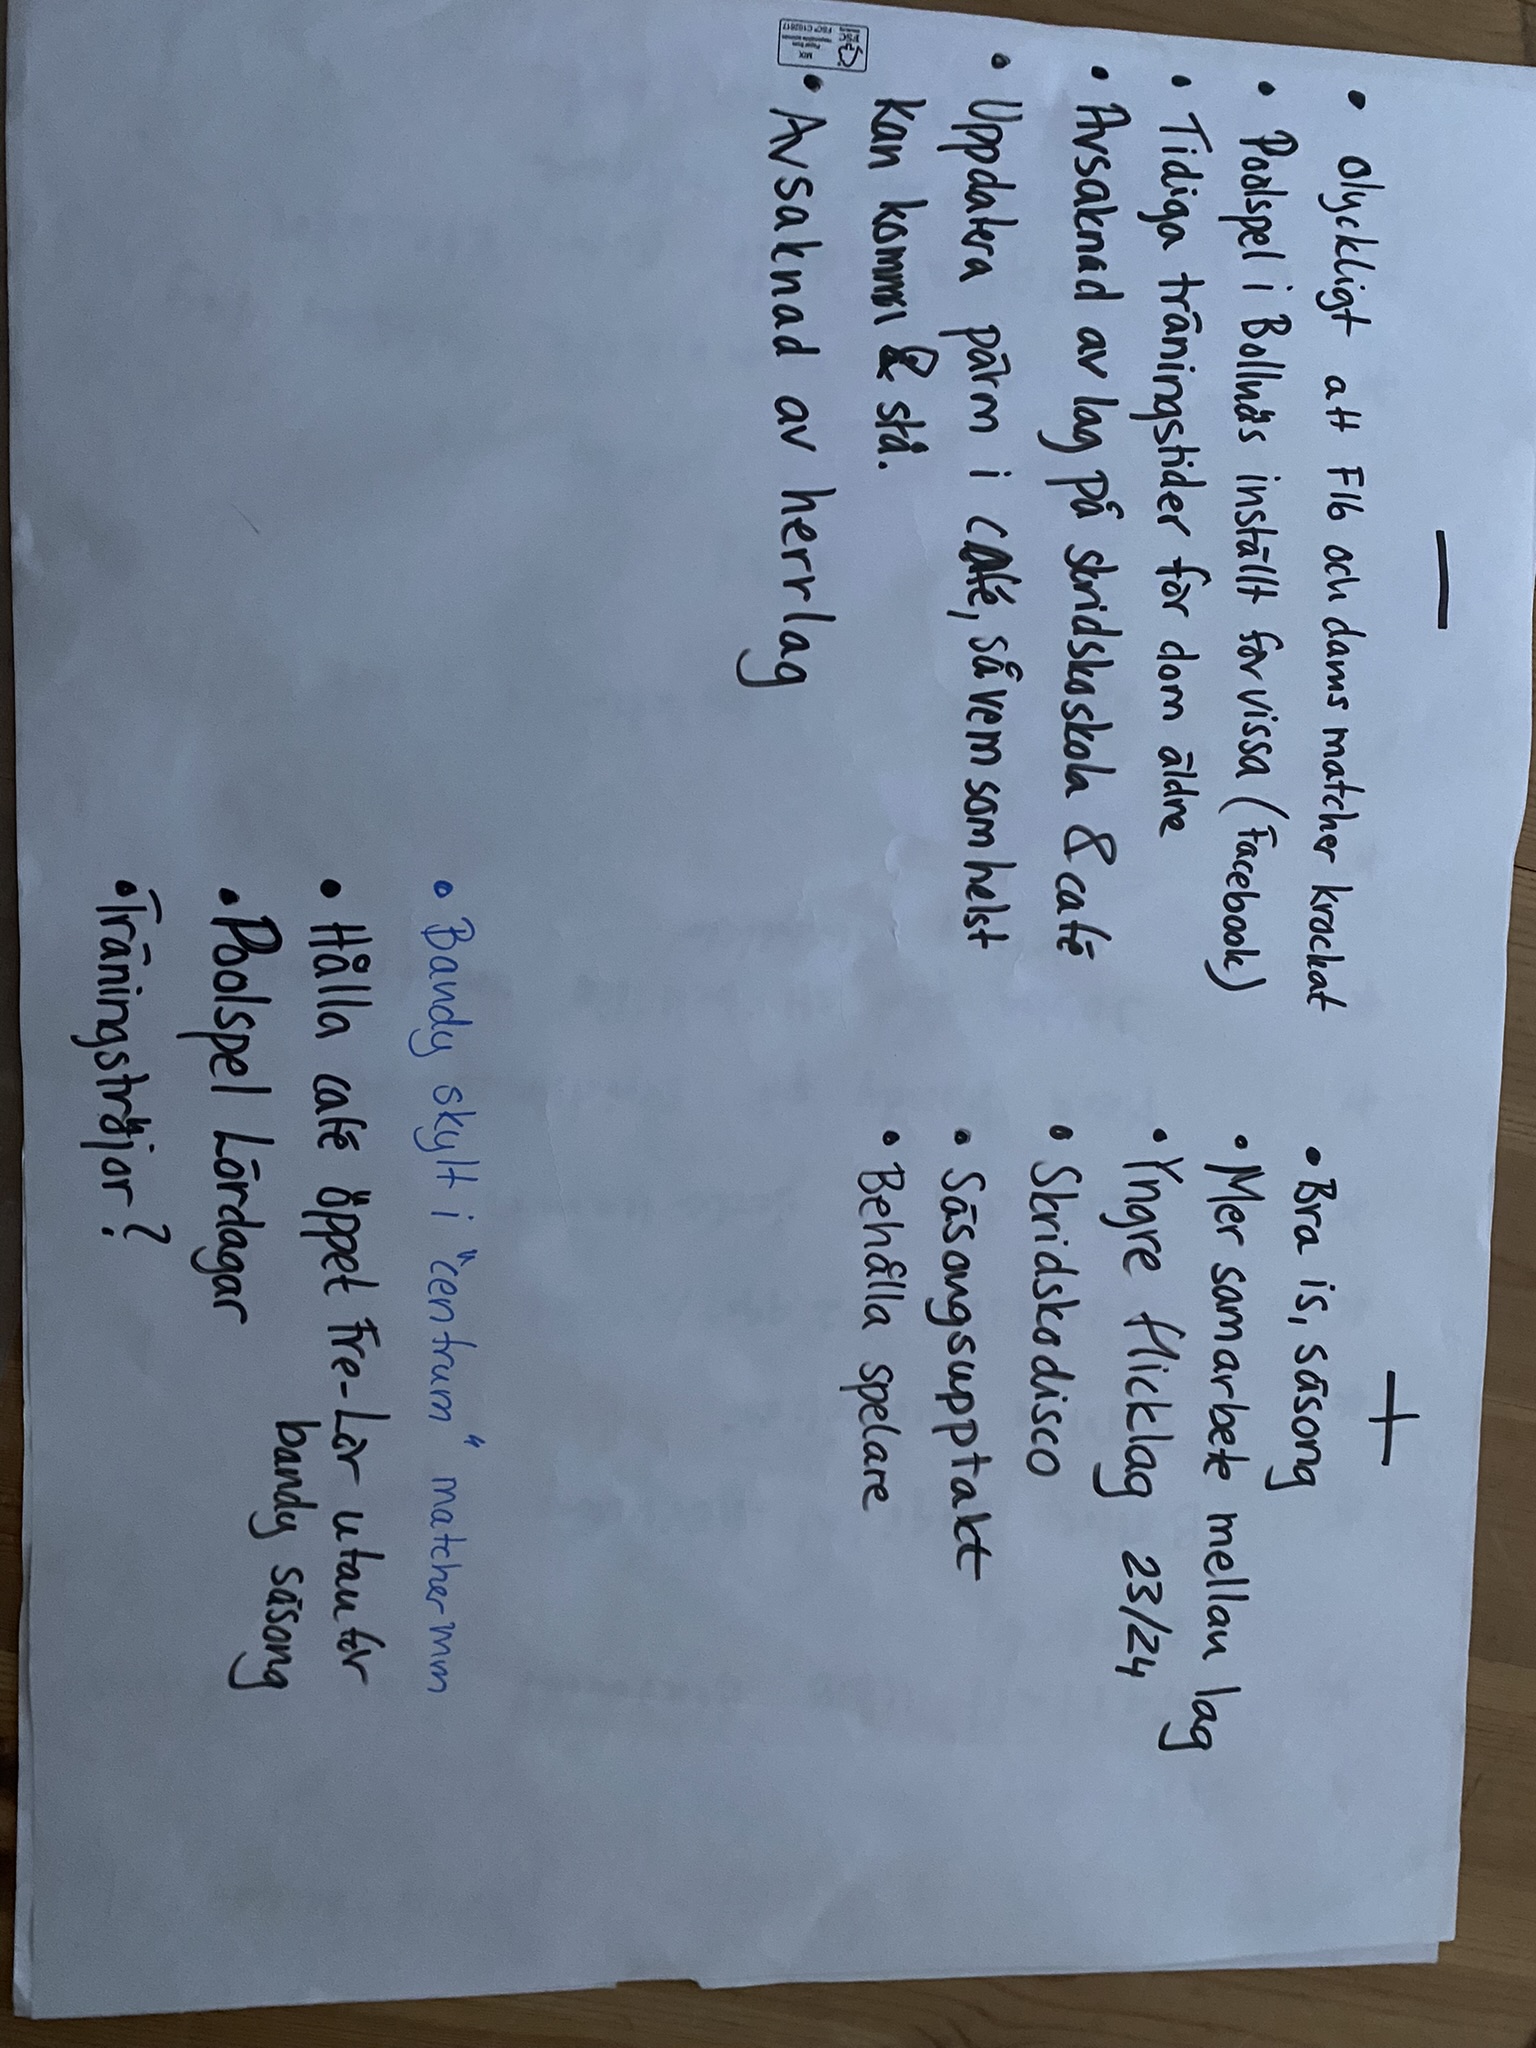 —
• Olyckligt att F16 och dams matcher krockat
• Poolspel i Bollnäs inställt för vissa (Facebook)
• Tidiga träningstider för dom äldre
• Avsaknad av lag på skridskoskola & café
• Uppdatera pärm i café, så vem som helst
kan komma & stå.
• Avsaknad av herrlag
+
• Bra is, säsong
• Mer samarbete mellan lag
• Yngre flicklag 23/24
• Skridskodisco
• Säsongsupptakt
• Behålla spelare
• Bandy skylt i "centrum" matcher mm
• Hålla café öppet Fre-Lör utanför
bandy säsong
• Poolspel Lördagar
• Träningströjor?
MIX
FSC® C102817